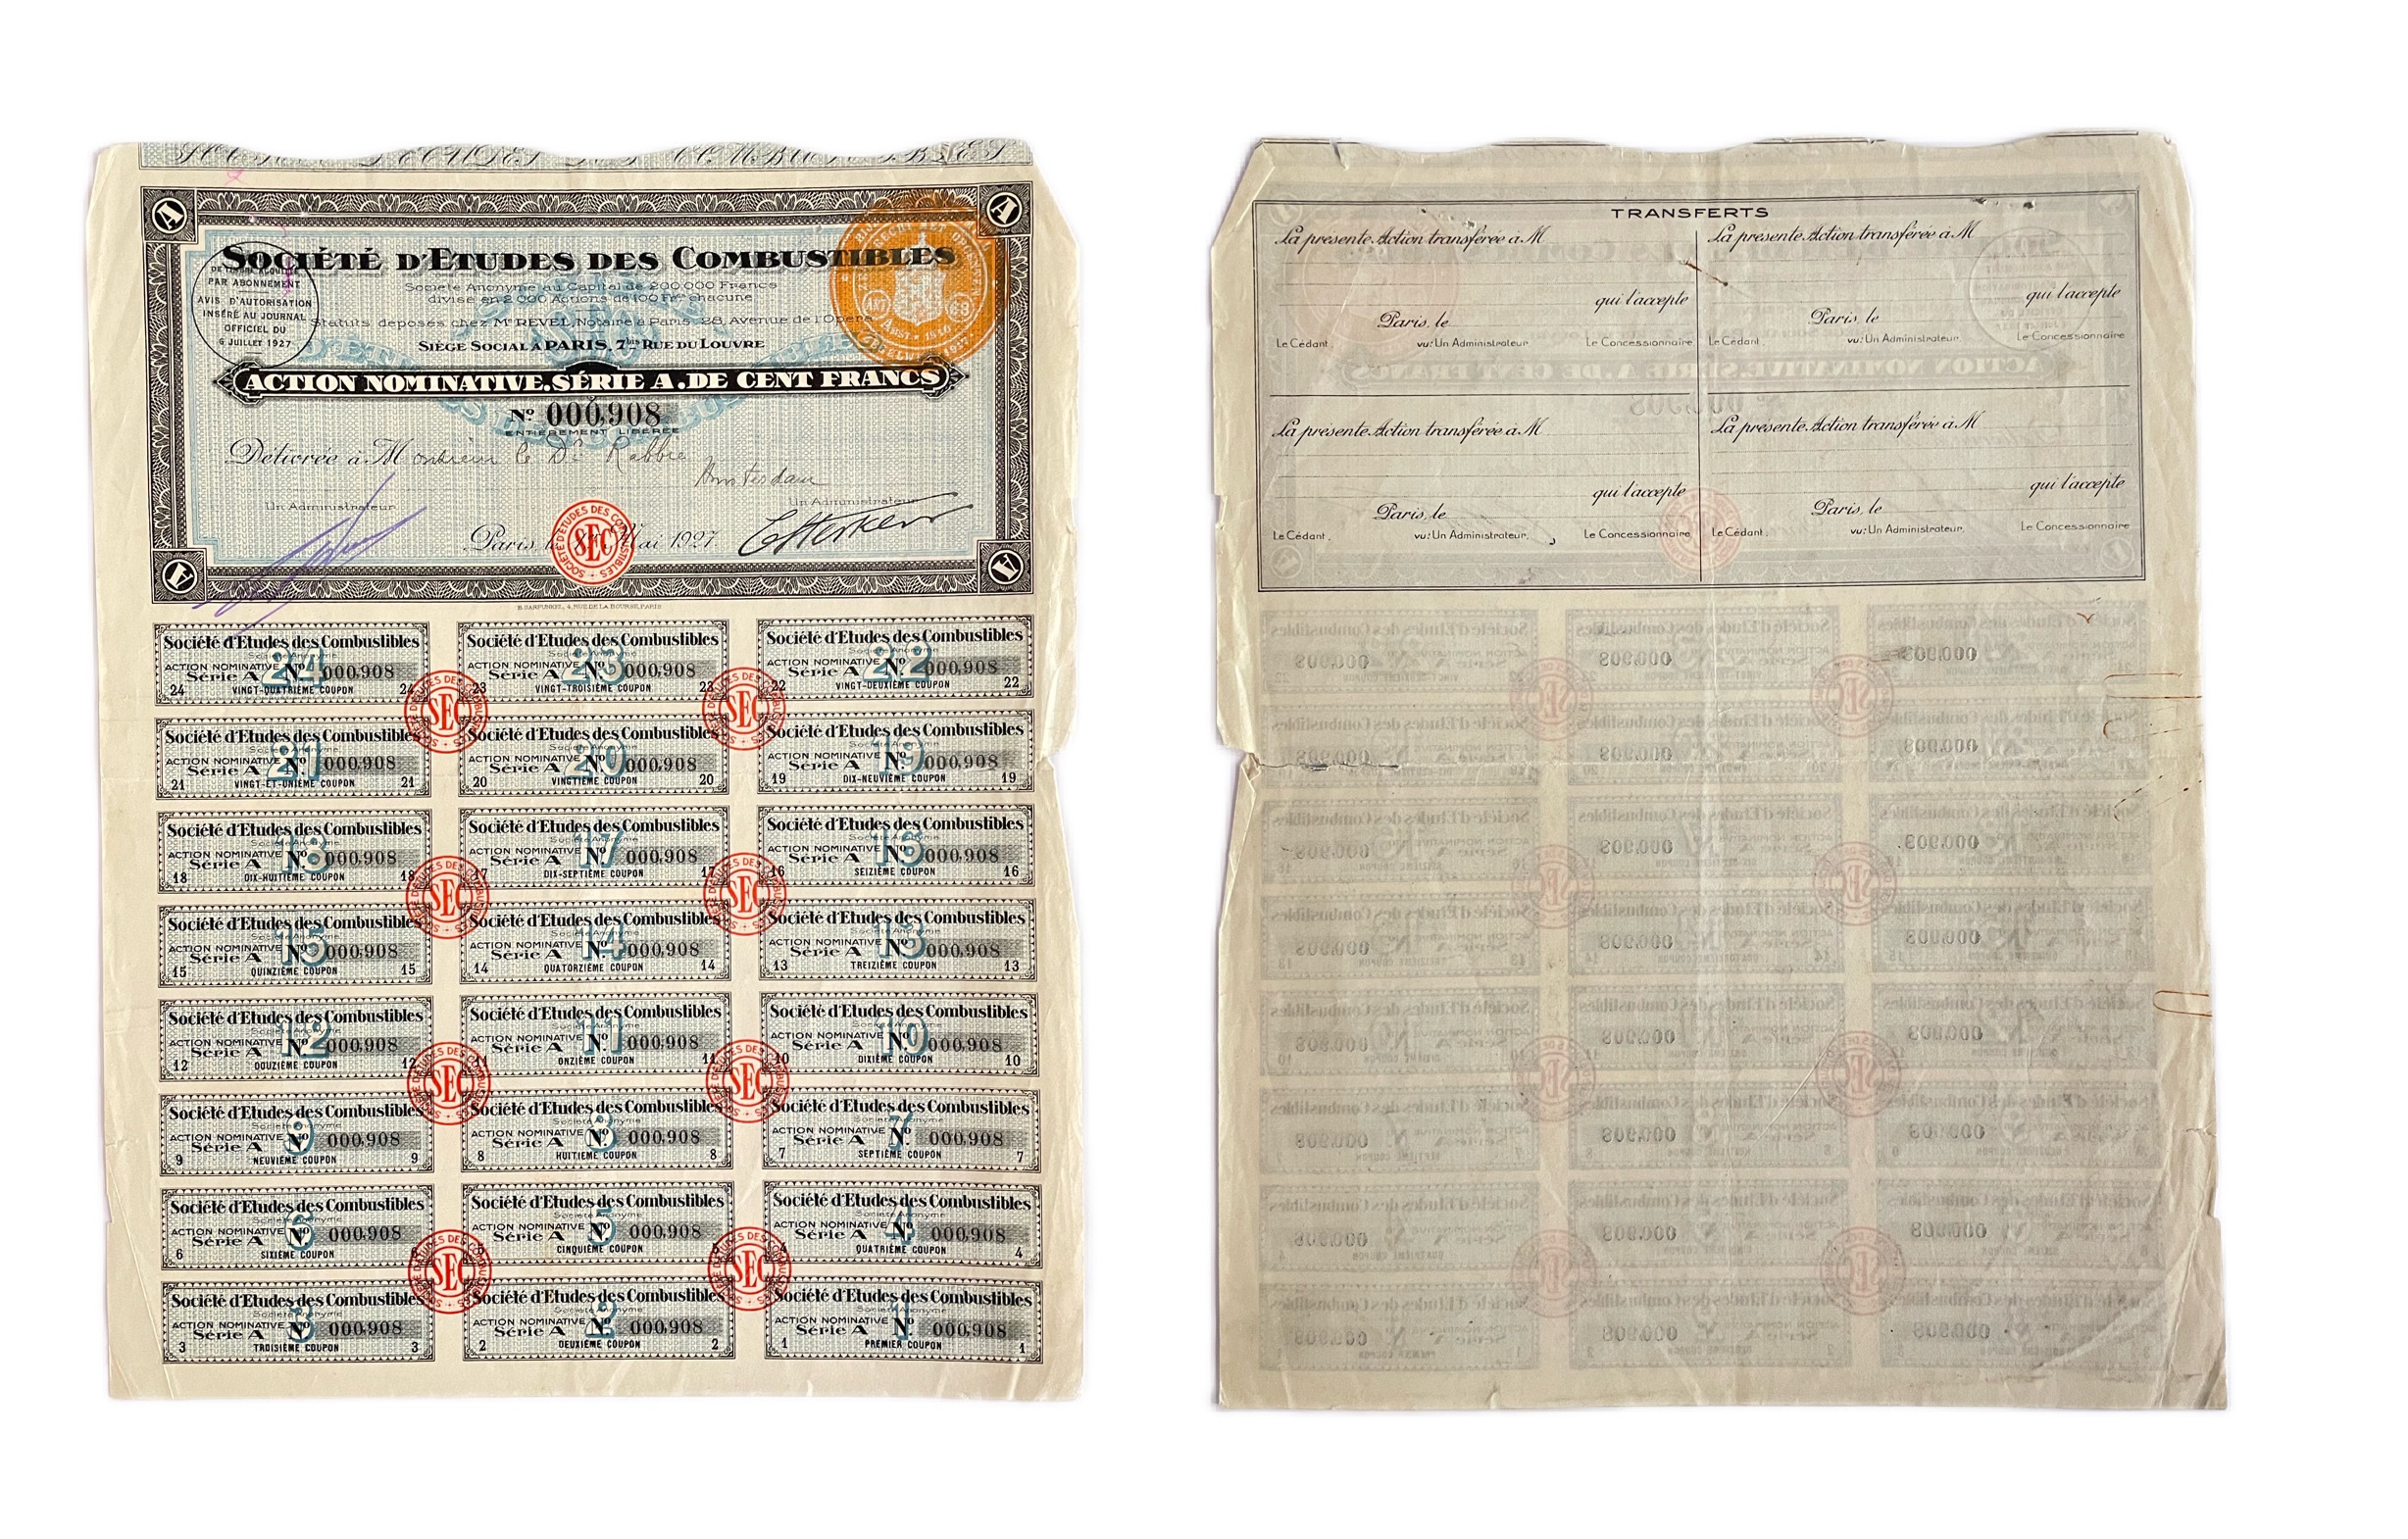 SOCIÉTÉ D'ETUDES DES COMBUSTIBLES
Société Anonyme au Capital de 200.000 Francs
divisé en 2.000 Actions de 100 Frcs chacune
Statuts déposés chez Me REVEL, Notaire à Paris, 28, Avenue de l'Opéra
SIÈGE SOCIAL À PARIS, 7bis RUE DU LOUVRE
PAR ABONNEMENT
AVIS D'AUTORISATION
INSÉRÉ AU JOURNAL
OFFICIEL DU
6 JUILLET 1927
ACTION NOMINATIVE. SÉRIE A. DE CENT FRANCS
No 000,908
ENTIÈREMENT LIBÉRÉE
Délivrée à Monsieur le Dr Rabbie
Amsterdam
Un Administrateur
Un Administrateur
Paris le Mai 1927
SEC
SOCIÉTÉ D'ÉTUDES DES COMBUSTIBLES
4, RUE DE LA BOURSE, PARIS
Société d'Etudes des Combustibles
Société Anonyme
ACTION NOMINATIVE
Série A No 000,908
24 VINGT-QUATRIÈME COUPON 24
Société d'Etudes des Combustibles
Société Anonyme
ACTION NOMINATIVE
Série A No 000,908
23 VINGT-TROISIÈME COUPON 23
Société d'Etudes des Combustibles
Société Anonyme
ACTION NOMINATIVE
Série A No 000,908
22 VINGT-DEUXIÈME COUPON 22
Société d'Etudes des Combustibles
Société Anonyme
ACTION NOMINATIVE
Série A No 000,908
21 VINGT-ET-UNIÈME COUPON 21
Société d'Etudes des Combustibles
Société Anonyme
ACTION NOMINATIVE
Série A No 000,908
20 VINGTIÈME COUPON 20
Société d'Etudes des Combustibles
Société Anonyme
ACTION NOMINATIVE
Série A No 000,908
19 DIX-NEUVIÈME COUPON 19
Société d'Etudes des Combustibles
Société Anonyme
ACTION NOMINATIVE
Série A No 000,908
18 DIX-HUITIÈME COUPON 18
Société d'Etudes des Combustibles
Société Anonyme
ACTION NOMINATIVE
Série A No 000,908
17 DIX-SEPTIÈME COUPON 17
Société d'Etudes des Combustibles
Société Anonyme
ACTION NOMINATIVE
Série A No 000,908
16 SEIZIÈME COUPON 16
Société d'Etudes des Combustibles
Société Anonyme
ACTION NOMINATIVE
Série A No 000,908
15 QUINZIÈME COUPON 15
Société d'Etudes des Combustibles
Société Anonyme
ACTION NOMINATIVE
Série A No 000,908
14 QUATORZIÈME COUPON 14
Société d'Etudes des Combustibles
Société Anonyme
ACTION NOMINATIVE
Série A No 000,908
13 TREIZIÈME COUPON 13
Société d'Etudes des Combustibles
Société Anonyme
ACTION NOMINATIVE
Série A No 000,908
12 DOUZIÈME COUPON 12
Société d'Etudes des Combustibles
Société Anonyme
ACTION NOMINATIVE
Série A No 000,908
11 ONZIÈME COUPON 11
Société d'Etudes des Combustibles
Société Anonyme
ACTION NOMINATIVE
Série A No 000,908
10 DIXIÈME COUPON 10
Société d'Etudes des Combustibles
Société Anonyme
ACTION NOMINATIVE
Série A No 000,908
9 NEUVIÈME COUPON 9
Société d'Etudes des Combustibles
Société Anonyme
ACTION NOMINATIVE
Série A No 000,908
8 HUITIÈME COUPON 8
Société d'Etudes des Combustibles
Société Anonyme
ACTION NOMINATIVE
Série A No 000,908
7 SEPTIÈME COUPON 7
Société d'Etudes des Combustibles
Société Anonyme
ACTION NOMINATIVE
Série A No 000,908
6 SIXIÈME COUPON 6
Société d'Etudes des Combustibles
Société Anonyme
ACTION NOMINATIVE
Série A No 000,908
5 CINQUIÈME COUPON 5
Société d'Etudes des Combustibles
Société Anonyme
ACTION NOMINATIVE
Série A No 000,908
4 QUATRIÈME COUPON 4
Société d'Etudes des Combustibles
Société Anonyme
ACTION NOMINATIVE
Série A No 000,908
3 TROISIÈME COUPON 3
Société d'Etudes des Combustibles
Société Anonyme
ACTION NOMINATIVE
Série A No 000,908
2 DEUXIÈME COUPON 2
Société d'Etudes des Combustibles
Société Anonyme
ACTION NOMINATIVE
Série A No 000,908
1 PREMIER COUPON 1
TRANSFERTS
La présente Action transférée à M
qui l'accepte
Paris, le
Le Cédant. vu: Un Administrateur Le Concessionnaire
La présente Action transférée à M
qui l'accepte
Paris, le
Le Cédant. vu: Un Administrateur. Le Concessionnaire
La présente Action transférée à M
qui l'accepte
Paris, le
Le Cédant. vu: Un Administrateur. Le Concessionnaire
La présente Action transférée à M
qui l'accepte
Paris, le
Le Cédant. vu: Un Administrateur. Le Concessionnaire